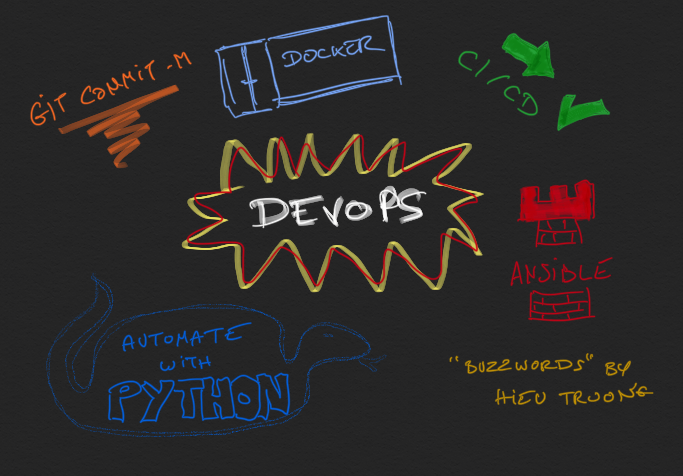 GIT COMMIT -M
DOCKER
CI/CD
DEVOPS
ANSIBLE
AUTOMATE
WITH
PYTHON
"BUZZWORDS" BY
HIEU TRUONG